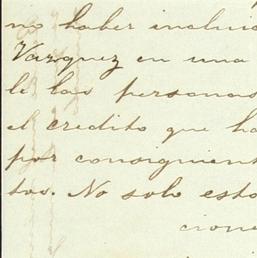 no haber incluid
Vazquez en una
le las personas
el credito que ha
por consiguient
tos. No solo esto
cione